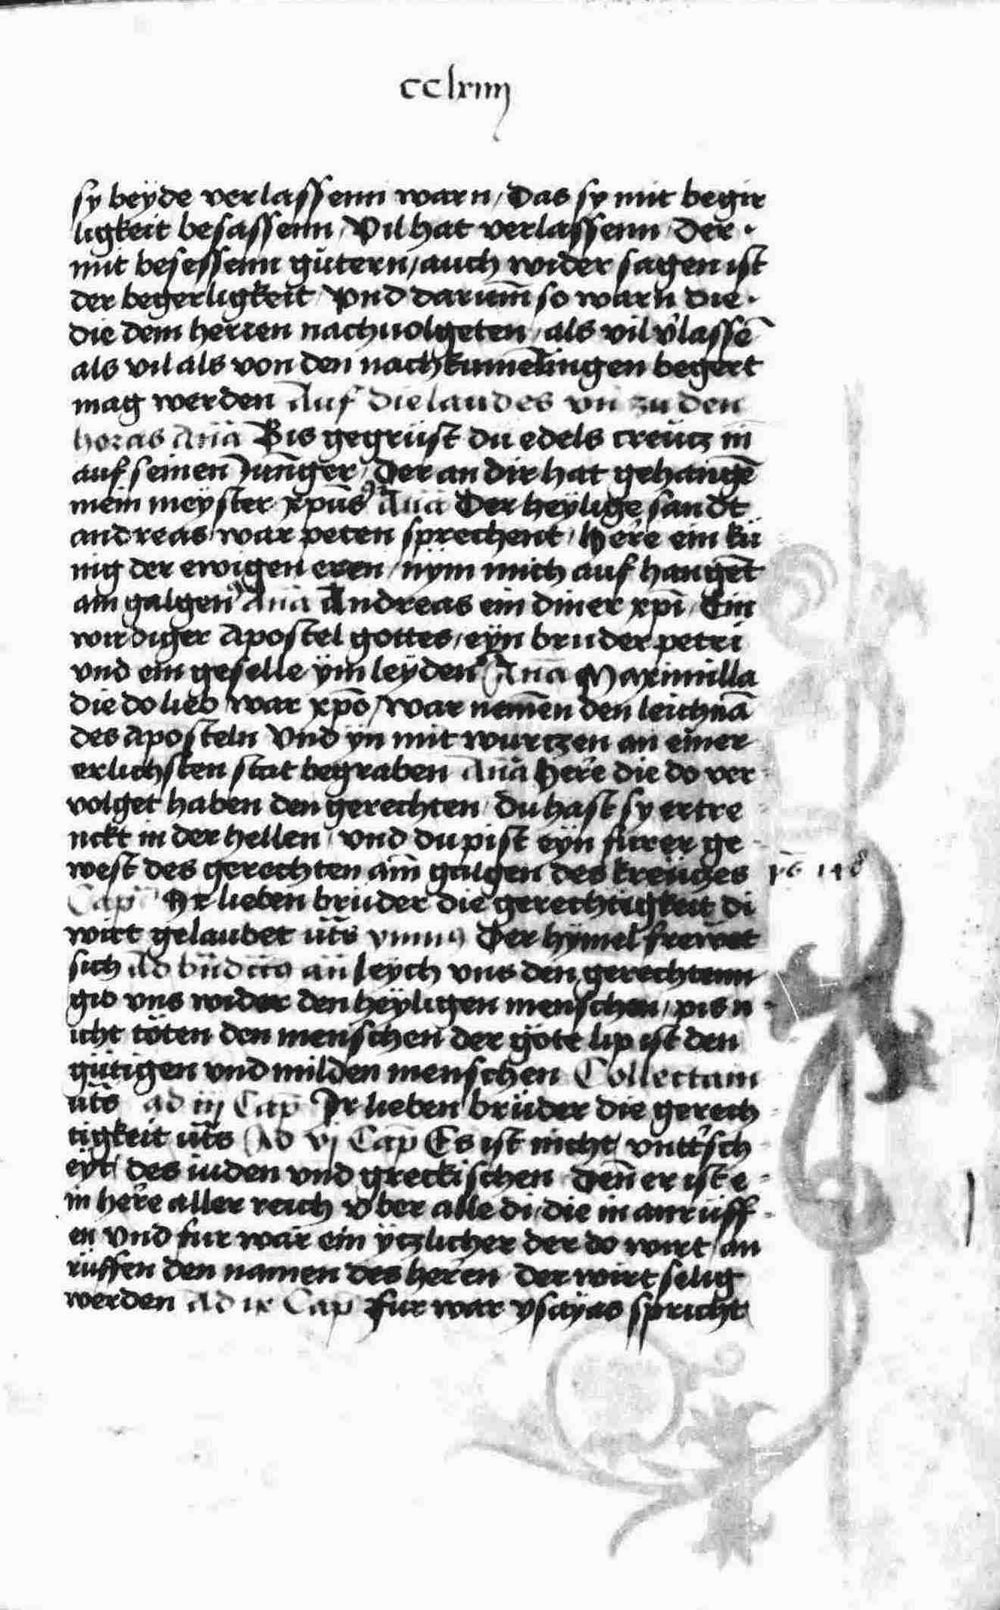 cclxiiij
sy beyde verlassenn warn / Das sy mit begir
ligkeit besassenn / Vil hat verlassenn / der ·
mit besessenn gütern / auch wider sagen ist
der begerligkeit / Vnd darum̄ so warn die ·
die dem herren nachuolgeten / als vil v̾lassē
als vil als von den nachkumēlingen begert
mag werden Auf die laudes vn̄ zu den
horas Añā Bis gegrüst du edels creütz nī
auf seinen Jūnger / Der an dir hat gehangē
mein meyster xp̄us Añā Der heylige sandt
andreas war peten sprechent / Here ein kü
nig der ewigen eren / nym mich auf hangēt
am galgen Añā Andreas ein diner xp̄i / Ein
wirdiger apostel gottes / eyn bruder petri
vnd ein geselle ym leyden Añā Maximilla
die do lieb war xp̄o / war nemen den leichnā
des aposteln Vnd yn mit wurtzen an einer
erlichsten stat begraben Añā Here die do ver
volget haben den gerechten / du hast sy ertre
nckt in der hellen / vnd du pist eyn fürer ge
west des gerechten am galgen des kreüczes
Cap̄ Ir lieben brüder die gerechtigkeit di
wirt gelaubet ut̄s Der hymel frewet
sich Ad leych vns den gerechtenn
gib vns wider den heyligen menschen / pis n
icht töten den menschen der gote lip ist den
gütigen vnd milden menschen Collectam
ut̄s ad iij Cap̄ Ir lieben brüder die gerech
tigkeit ut̄s Ad vj Cap̄ Es ist nicht vntt̾sch
eyt / des iuden vnd greckischen Denn er ist e
in here aller reich vber alle di / die in anrüff
en Vnd fur war ein yczlicher der do wirt / an
rüffen den namen des heren der wirt selig
werden Ad ix Cap̄ fur war ysayas spricht